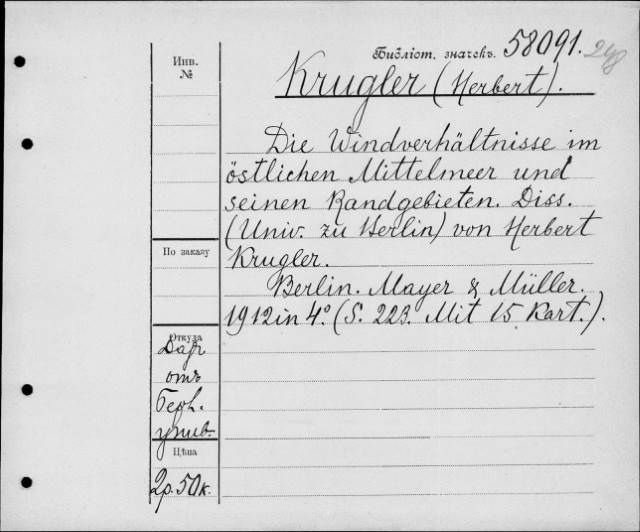 Инв.
№
Библіот. значекъ. 58091.
248
Krugler (Herbert).
Die Windverhältnisse im
östlichen Mittelmeer und
seinen Randgebieten. Diss.
(Univ. zu Berlin) von Herbert
Krugler.
Berlin. Mayer & Müller.
1912 in 4° (S. 223. Mit 15 Kart.).
По заказу
Откуда
Даръ
отъ
Берл.
унив.
Цѣна
2р. 50к.